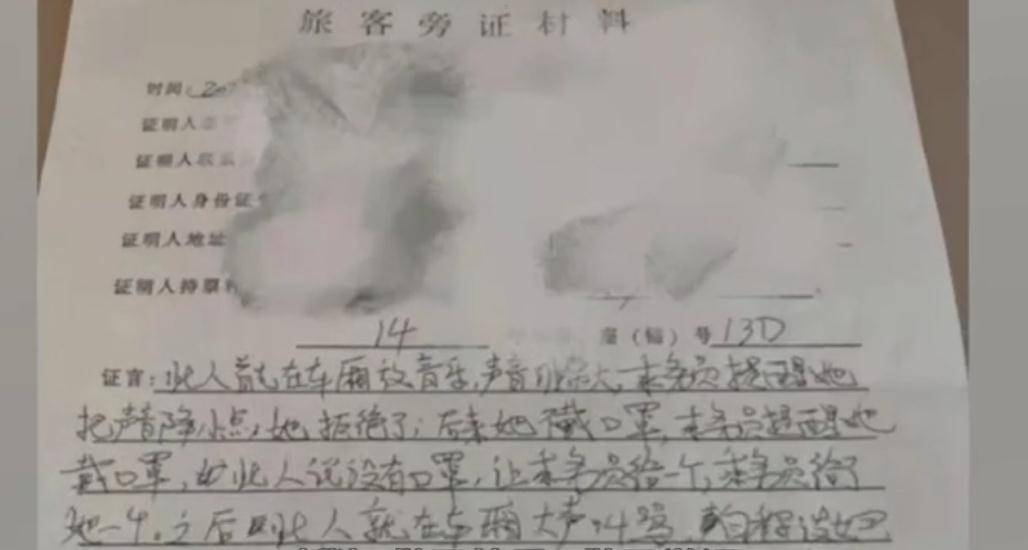 旅客旁证材料
时间：20
证明人
证明人联系
证明人身份证
证明人地址
证明人持票
14 座（铺）号 13D
证言：此人首先在车厢放音乐，声音 大，乘务员提醒她
把声音降小点，她拒绝了；后来她 戴口罩，乘务员提醒她
戴口罩，此人说没有口罩，让乘务员给一个，乘务员给了
她一个，之后 此人就在车厢大声